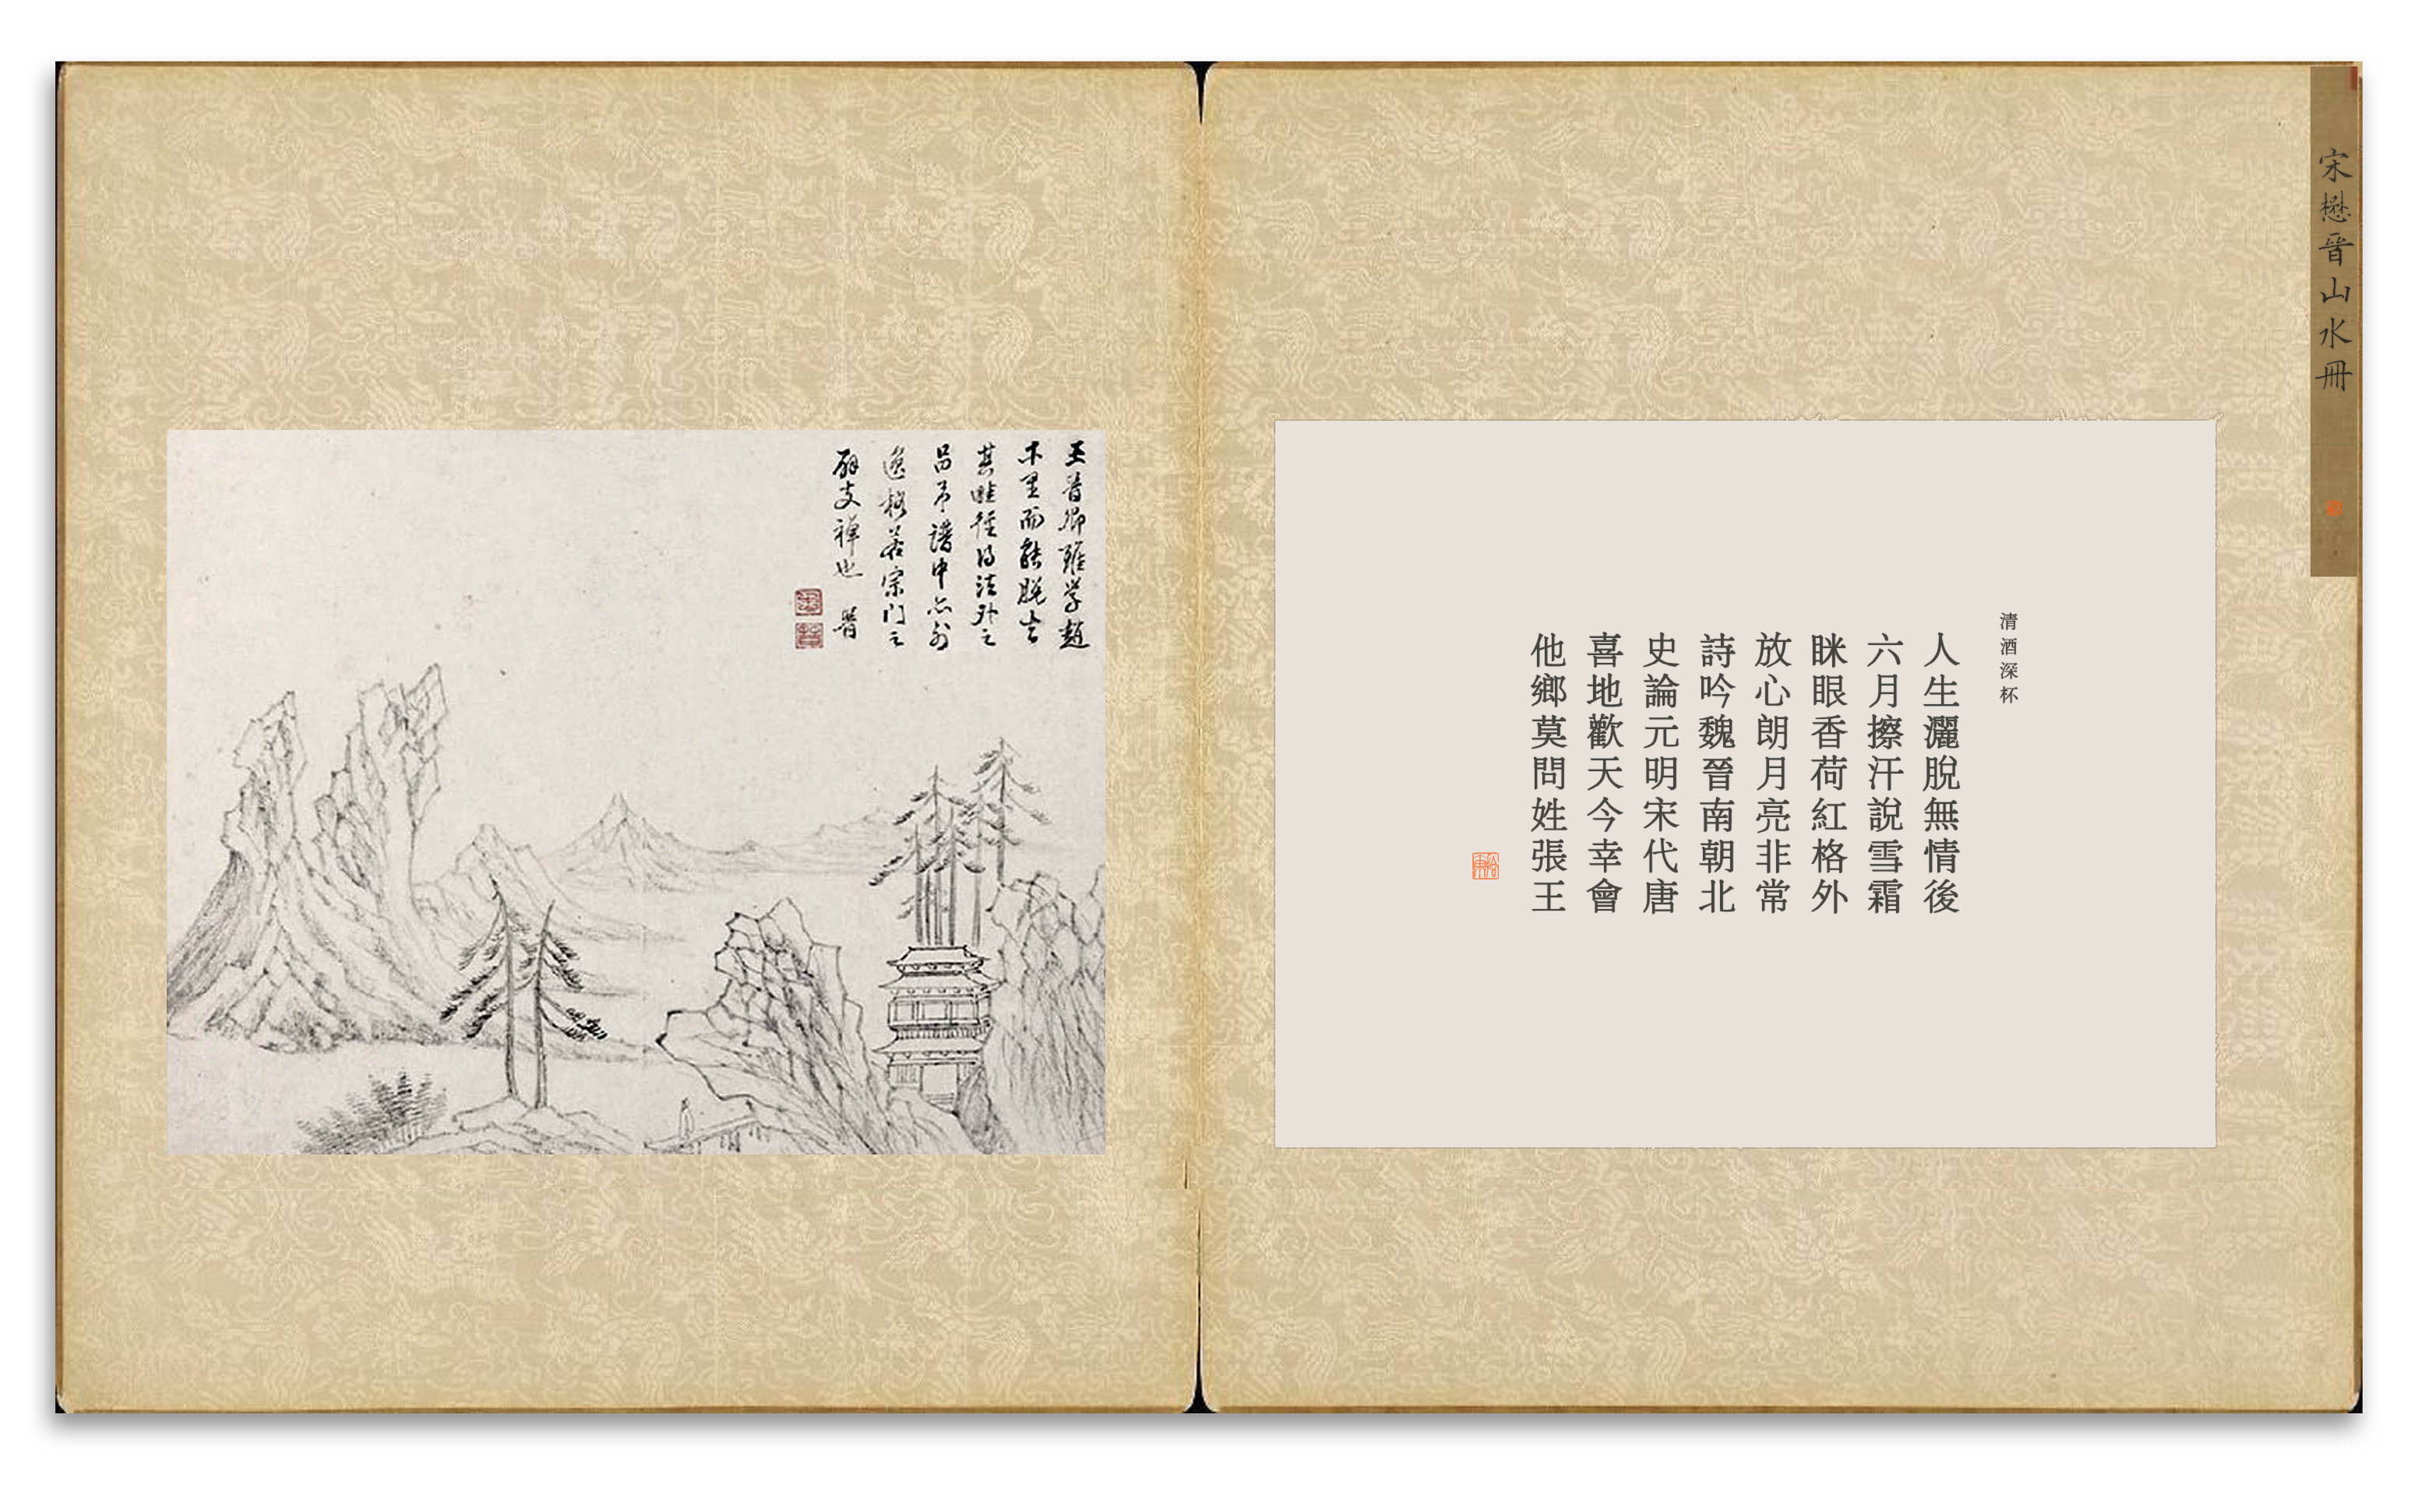 宋懋晉山水冊
清酒深杯
人生灑脫無情後
六月擦汗說雪霜
眯眼香荷紅格外
放心朗月亮非常
詩吟魏晉南朝北
史論元明宋代唐
喜地歡天今幸會
他鄉莫問姓張王
王晉卿雖學趙
千里而能脫去
其畦徑得法外之
逸格若宗門之
散支禪也 晉